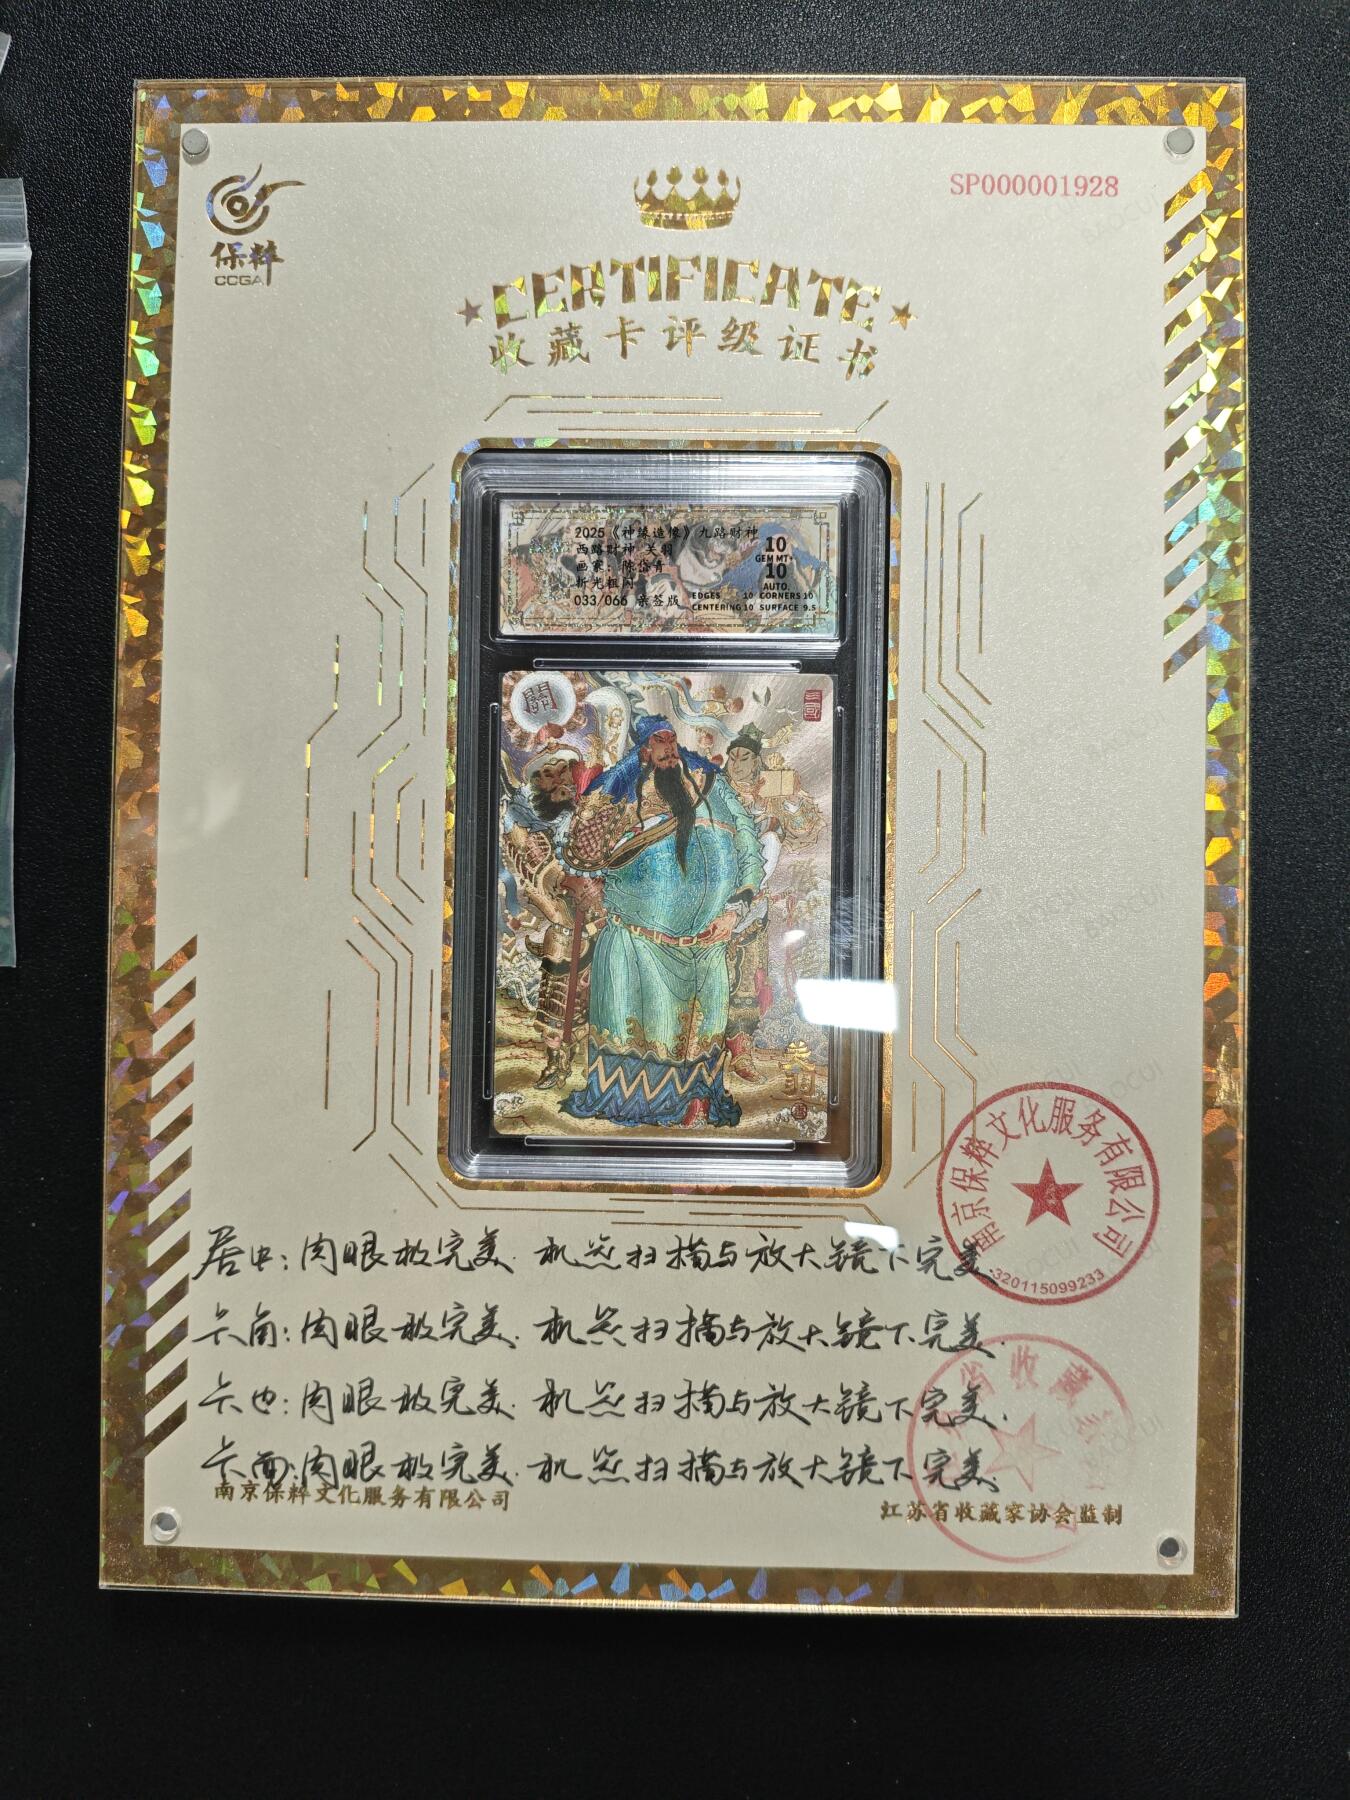 保粹
CCGA
SP000001928
CERTIFICATE
收藏卡评级证书
2025《神缘造像》九路财神
西路财神 关羽
画家：陈岱青
折光粗闪
033/066 亲签版
10
GEM MT+
10
AUTO.
EDGES 10 CORNERS 10
CENTERING 10 SURFACE 9.5
關
三国
关羽
居中：肉眼极完美．机器扫描与放大镜下完美
卡角：肉眼极完美．机器扫描与放大镜下完美．
卡边：肉眼极完美．机器扫描与放大镜下完美．
卡面：肉眼极完美．机器扫描与放大镜下完美．
南京保粹文化服务有限公司
320115099233
南京保粹文化服务有限公司
江苏省收藏家协会监制
BAOCUI